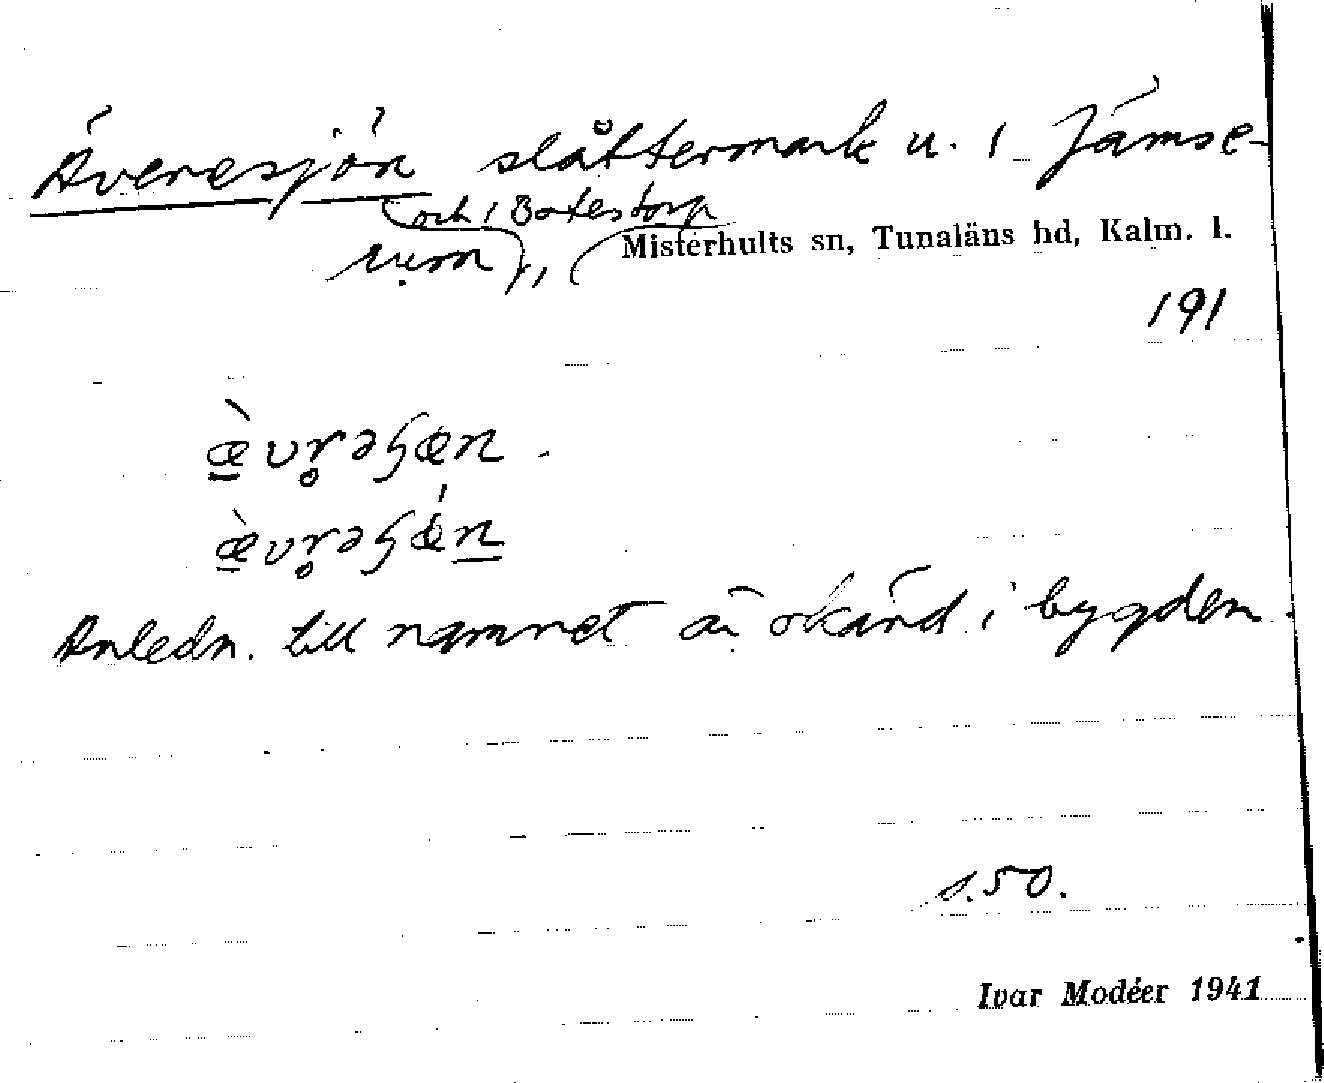 Äveresjön slåttermark u. 1 Jämse-
och 1 Botestorp
rum, Misterhults sn, Tunaläns hd, Kalm. l.
191
Anledn. till namnet är okänd i bygden.
s. 50.
Ivar Modéer 1941